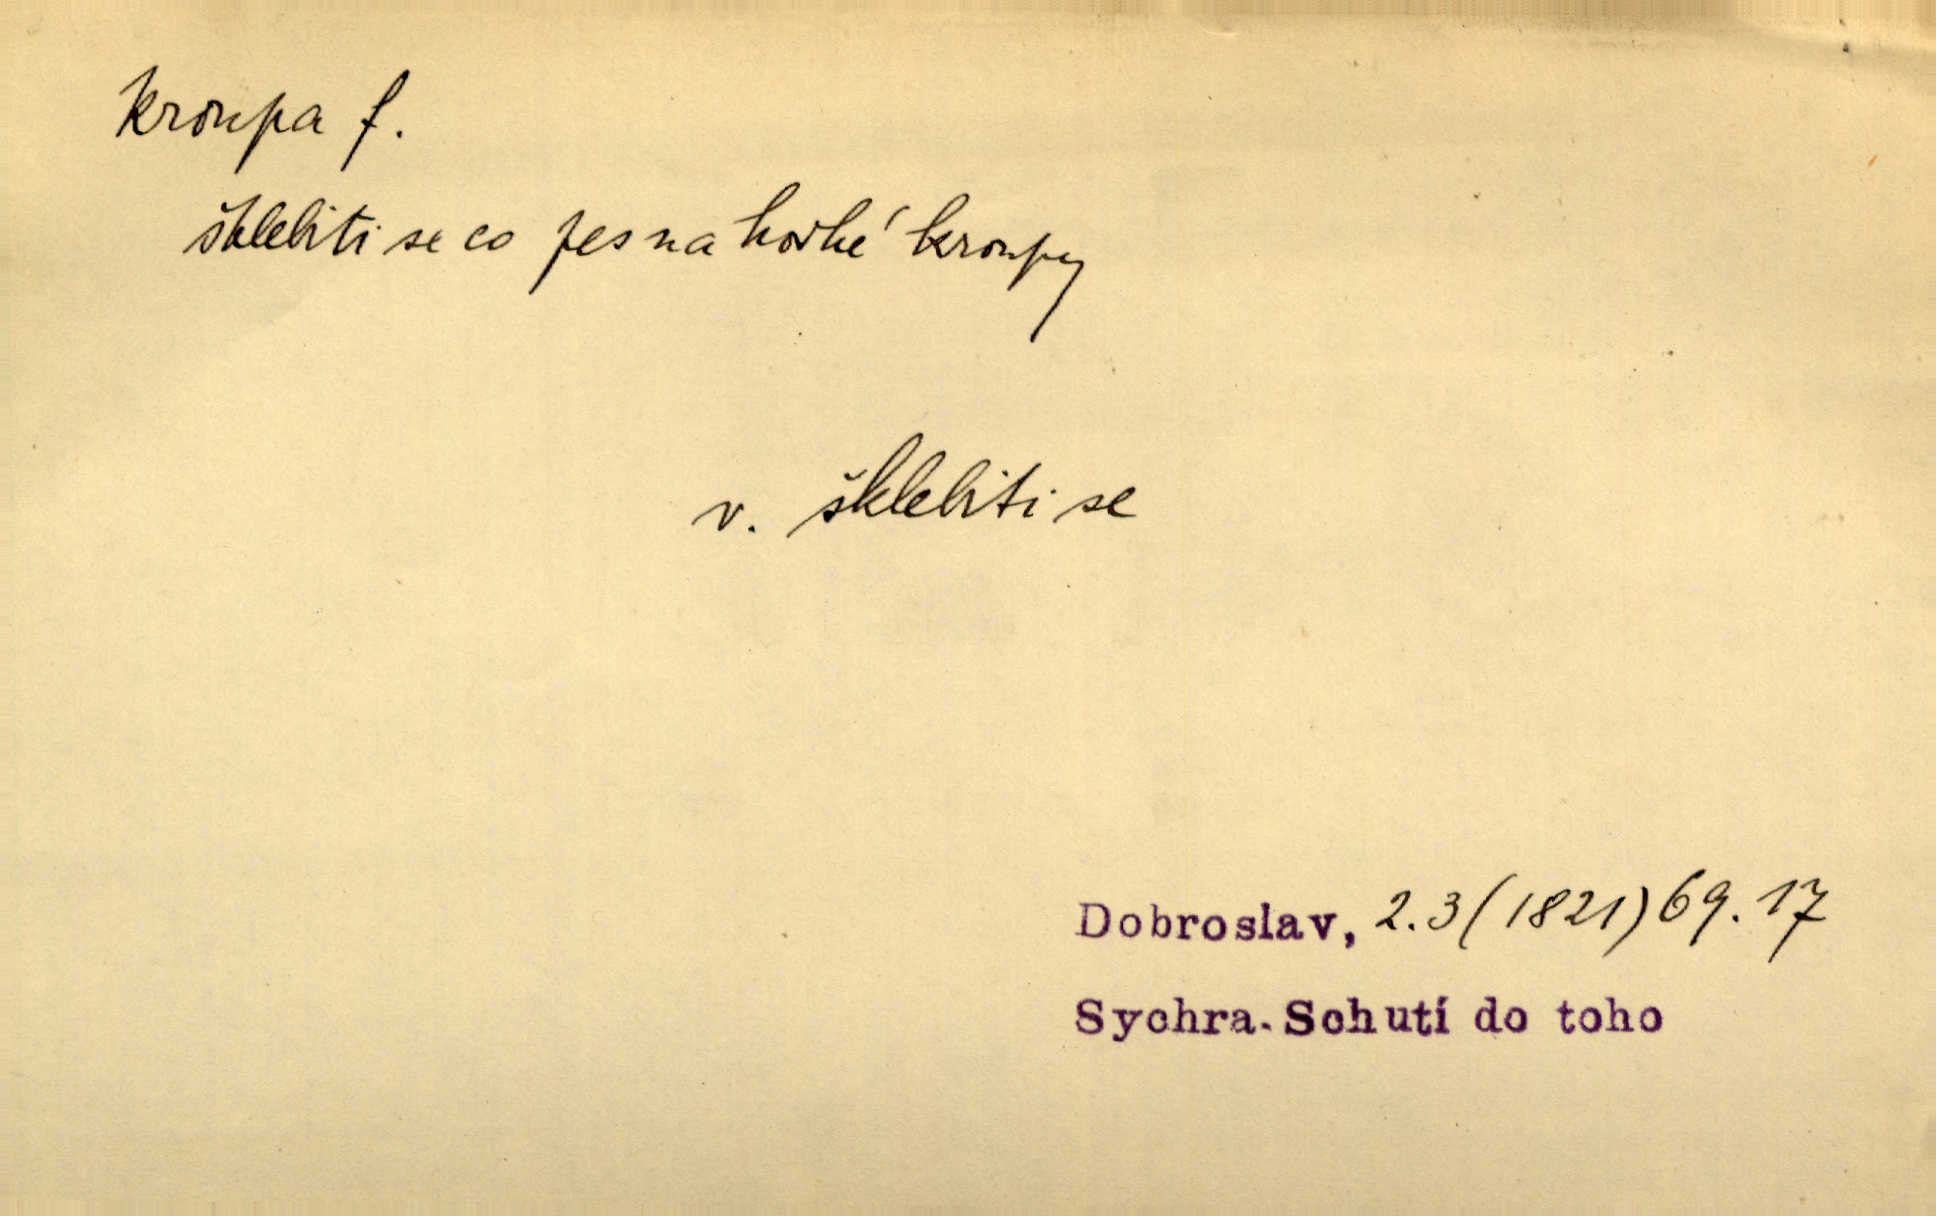 kroupa f.
šklebiti se co pes na horké kroupy
v. šklebiti se
Dobroslav, 2.3(1821)69.17
Sychra. Schutí do toho